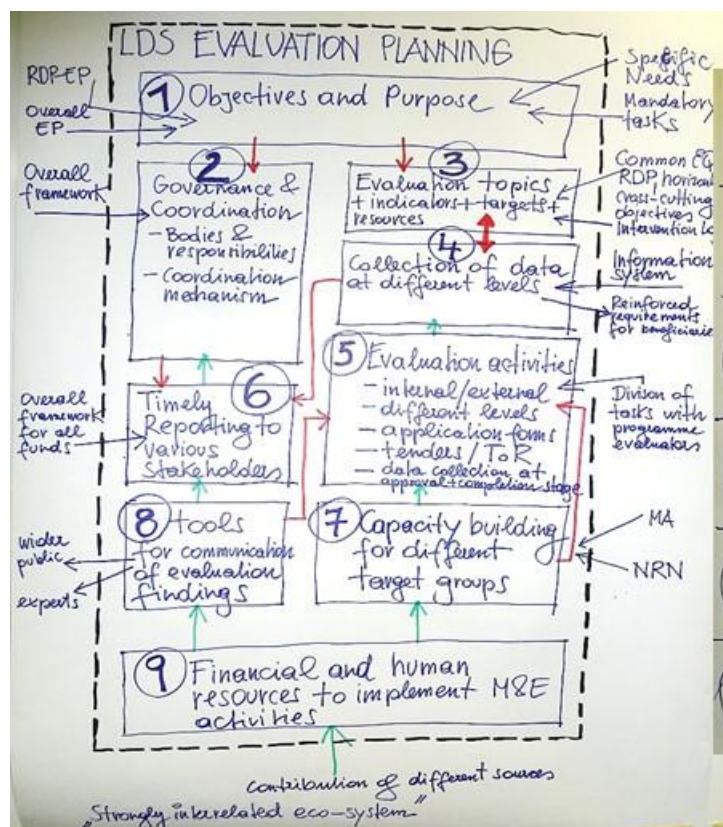 LDS EVALUATION PLANNING
RDP-EP,
Overall
EP
1 Objectives and Purpose
Spegific
Needs
Mandatory
tasks
Overall
framework
2
Governance &
Coordination
- Bodies &
responsibilities
- Coordination
mechanism
3
Evaluation topics
+ indicators + targets +
resources
Common EQ
RDP, horizon
cross-cutting
objectives
Intervention Lo
4
Collection of data
at different levels
Information
system
Reinforced
requirements
for beneficiarie
5 Evaluation activities
- internal/external
- different levels
- application-forms
- tenders/ToR
- data collection at
approval + completion stage
Divison of
tasks with
programme
evaluators
Overall
framework
for all
funds
6
Timely
Reporting to
various
Stakeholders
8 tools
for communication
of evaluation
findings
wider
public
experts
7 Capacity building
for different
target groups
MA
NRN
9 Financial and human
resources to implement M&E
activities
contribution of different sources
„Strongly interrelated eco-system"